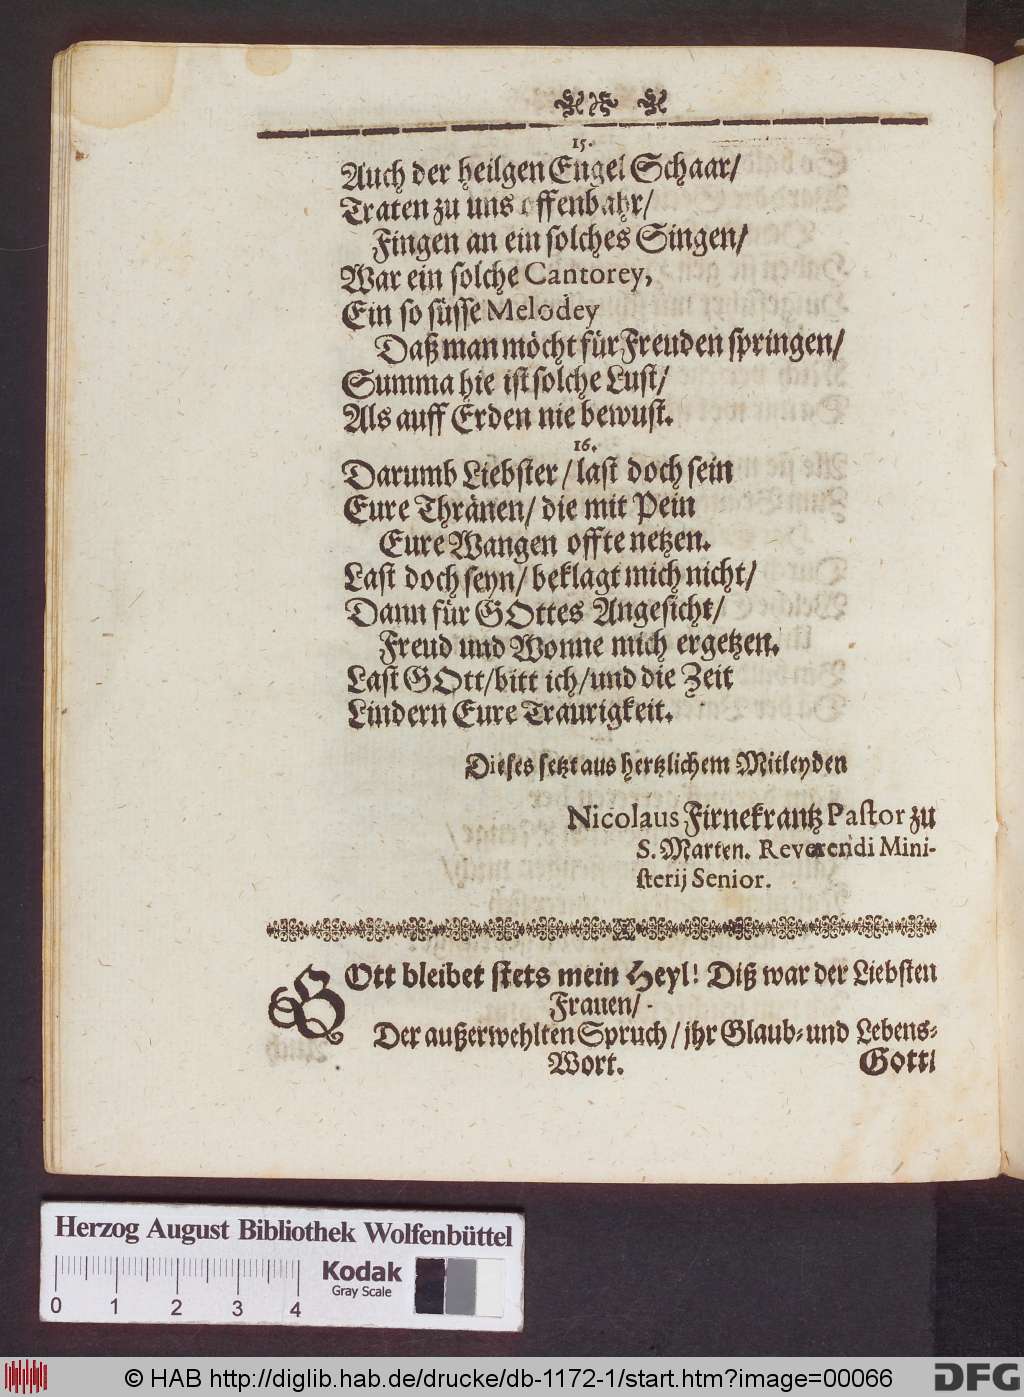 15.
Auch der heilgen Engel Schaar/
Traten zu uns offenbahr/
Fingen an ein solches Singen/
War ein solche Cantorey,
Ein so süsse Melodey
Daß man möcht für Freuden springen/
Summa hie ist solche Lust/
Als auff Erden nie bewust.
16.
Darumb Liebster/ last doch sein
Eure Thränen/ die mit Pein
Eure Wangen offte netzen.
Last doch seyn/ beklagt mich nicht/
Dann für GOttes Angesicht/
Freud und Wonne mich ergetzen.
Last GOtt/ bitt ich/ und die Zeit
Lindern Eure Traurigkeit.
Dieses setzt aus hertzlichem Mitleyden
Nicolaus Firnekrantz Pastor zu
S. Marten. Reverendi Mini-
sterij Senior.
GOtt bleibet stets mein Heyl! Diß war der Liebsten
Frauen/
Der außerwehlten Spruch/ jhr Glaub- und Lebens-
Wort.
Gott!
Herzog August Bibliothek Wolfenbüttel
Kodak
Gray Scale
0 1 2 3 4
© HAB http://diglib.hab.de/drucke/db-1172-1/start.htm?image=00066
DFG